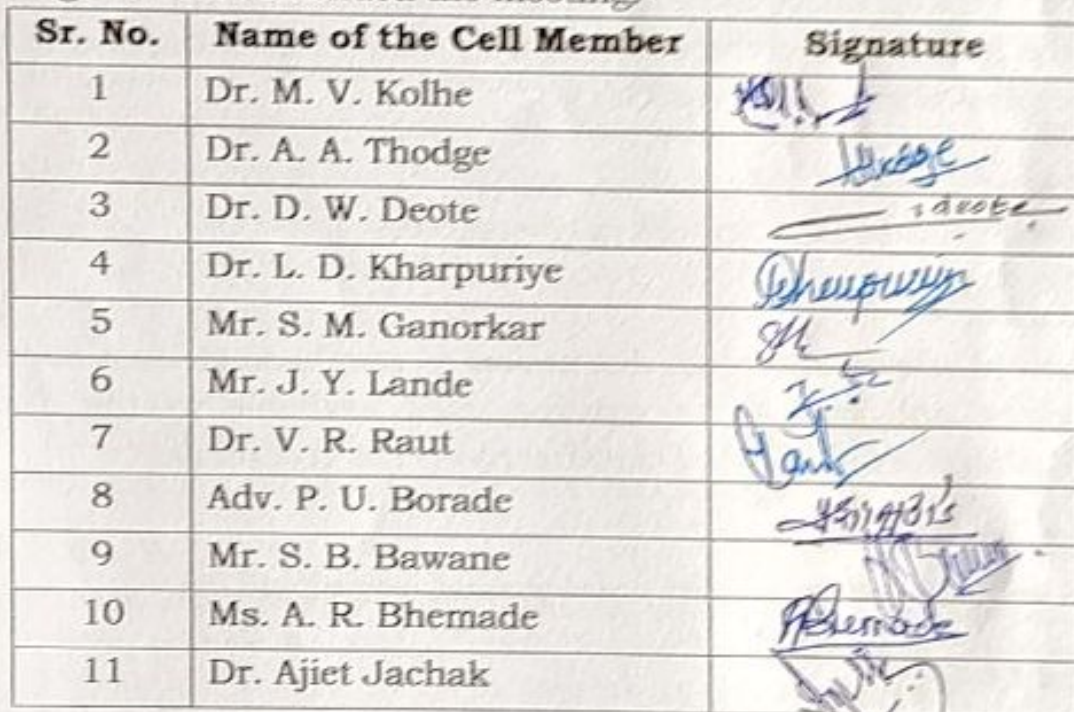 the meeting
Sr. No. Name of the Cell Member Signature
1 Dr. M. V. Kolhe
2 Dr. A. A. Thodge
3 Dr. D. W. Deote
4 Dr. L. D. Kharpuriye
5 Mr. S. M. Ganorkar
6 Mr. J. Y. Lande
7 Dr. V. R. Raut
8 Adv. P. U. Borade
9 Mr. S. B. Bawane
10 Ms. A. R. Bhemade
11 Dr. Ajiet Jachak